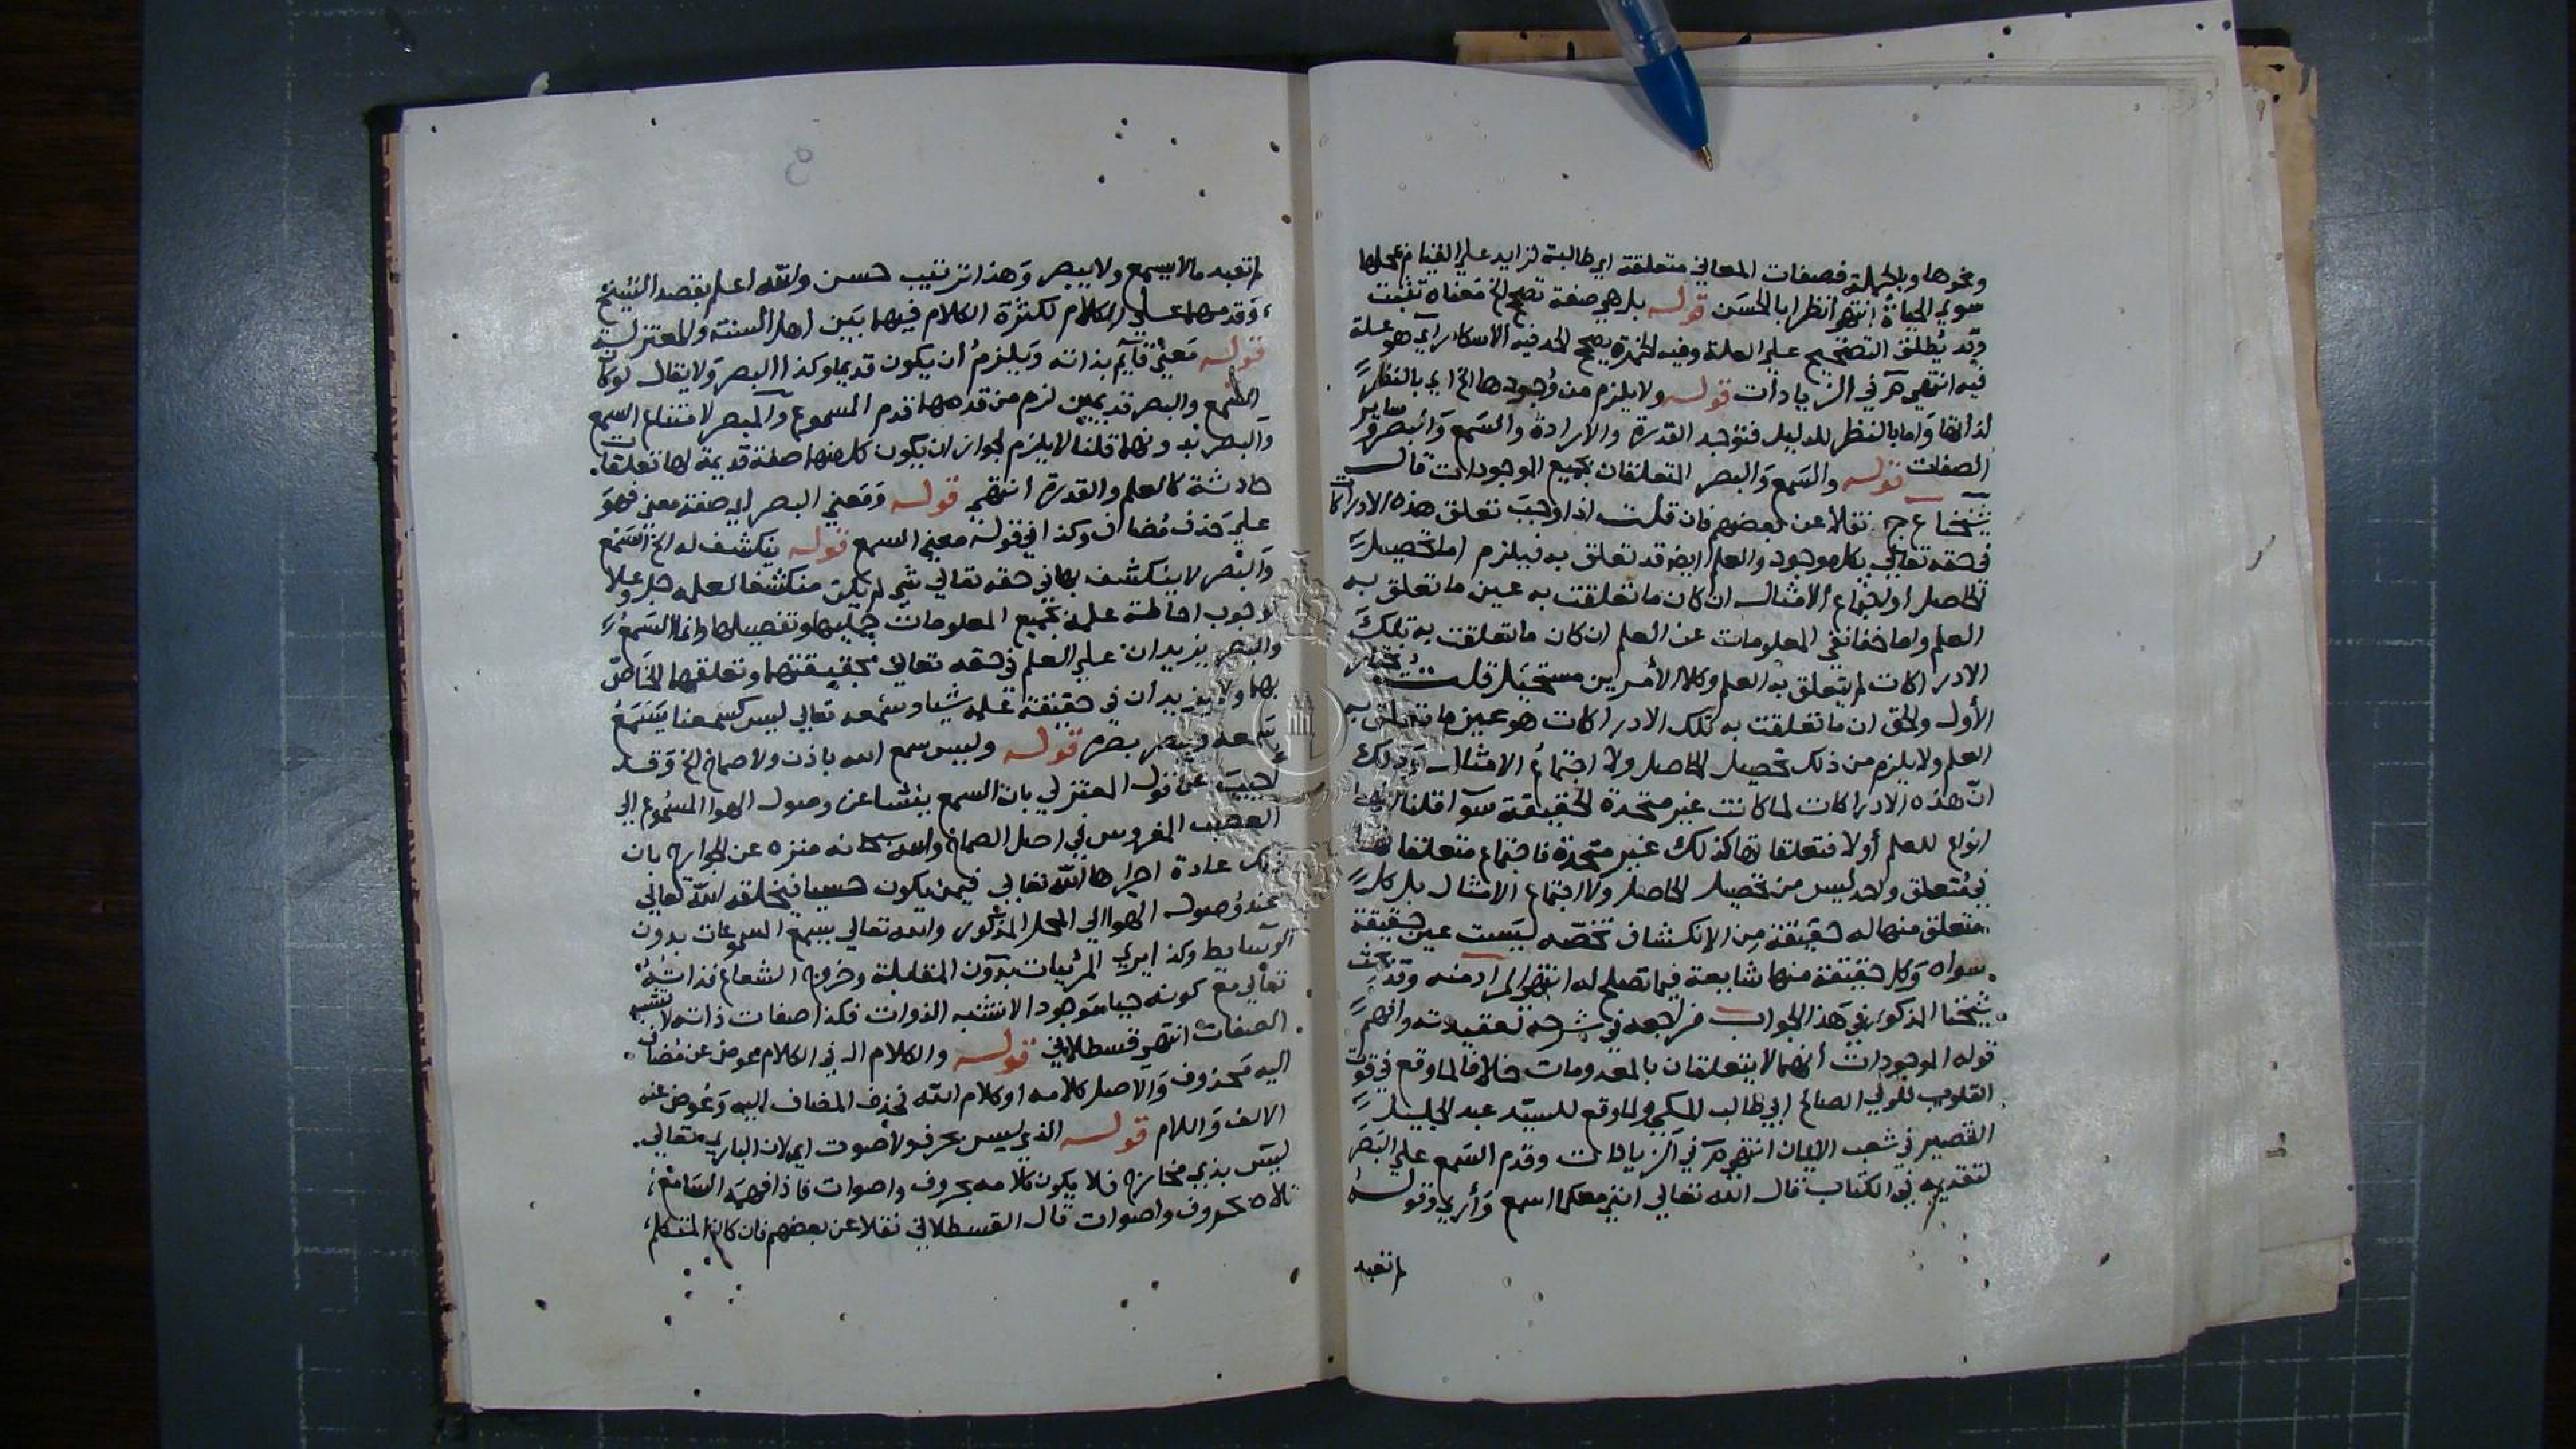 ونحوها وبالجملة فصفات المعاني متعلقة اي طالبة لزايد على القيام بمحلها
سوي الحياة انتهى انظر ابا الحسن قوله بل هي صفة تصحح الخ معناه تثبت
وقد يطلق التصحيح على العلة وفيه لثمرة يصحح لمحله فيه الاسكار اي هو علة
فيه انتهى في الزيادات قوله ولا يلزم من وجودها الخ اي بالنظر
لذاتها واما بالنظر للدليل فتوجد القدرة والارادة والسمع والبصر وساير
الصفات قوله والسمع والبصر المتعلقان بجميع الموجودات قال
شيخنا ع ج نقلا عن بعضهم فان قلت اذا وجب تعلق هذه الادراكات
في حقه تعالي بكل موجود والعلم ايضا قد تعلق به فيلزم اما تحصيل
الحاصل او اجتماع الامثال ان كان ما تعلقت به عين ما تعلق به
العلم واما خفا نفي المعلومات عن العلم ان كان ما تعلقت به تلك
الادراكات لم يتعلق به العلم وكلا الأمرين مستحيل قلت يختار
الأول والحق ان ما تعلقت به تلك الادراكات هو عين ما تعلق به
العلم ولا يلزم من ذلك تحصيل الحاصل ولا اجتماع الامثال وذلك
ان هذه الادراكات لما كانت غير متحدة الحقيقة سوا قلنا انها
انواع للعلم أولا فتعلقاتها كذلك غير متحدة فاجتماع متعلقاتها
في متعلق واحد ليس من تحصيل الحاصل ولا اجتماع الامثال بل كل
متعلق منها له حقيقة من الانكشاف تخصه ليست عين حقيقة
سواه وكل حقيقة منها شايعة فيما تصلح له انتهى المراد منه وقد بحث
شيخنا المذكور في هذا الجواب فراجعه في شرحه لعقيدته وافهم
قوله الموجودات أنهما لا يتعلقان بالمعدومات خلافا لما وقع في قوت
القلوب للولي الصالح ابي طالب المكي ولما وقع للسيد عبد الجليل
القصير في شعب الايمان انتهى في الزيادات وقدم السمع على البصر
لتقديمه في الكتاب قال الله تعالي انني معكما اسمع وأري وقوله
لم تعبد
لم تعبد ما لا يسمع ولا يبصر وهذا ترتيب حسن والله اعلم بقصد الشيخ
وقدمهما على الكلام لكثرة الكلام فيهما بين اهل السنة والمعتزلة
قوله معنى قايم بذاته ويلزم أن يكون قديما وكذا البصر ولا يقال لو كان
السمع والبصر قديمين لزم من قدمهما قدم المسموع والمبصر لامتناع السمع
والبصر بدونهما قلنا لا يلزم لجواز ان يكون كل منهما صفة قديمة لها تعلقات
حادثة كالعلم والقدرة انتهى قوله ومعني البصر اي صفة معني فهو
علي حذف مضاف وكذا في قوله معني السمع قوله ينكشف له الخ السمع
والبصر لا ينكشف بهما في حقه تعالي شي لم يكن منكشفا لعلمه جل وعلا
لوجوب احاطة علمه بجميع المعلومات جملها وتفصيلها وانما السمع
والبصر يزيدان علي العلم في حقه تعالي بحقيقتهما وتعلقهما الخاص
بهما ولا يزيدان في حقيقة علمه شيا وسمعه تعالي ليس كسمعنا يسمع
بسمعه ويبصر ببصره قوله وليس سمع الله باذن ولا صماخ الخ وقد
أجيب عن قول المعتزلي بان السمع ينشا عن وصول الهوا المسموع الي
العصب المفروس في اصل الصماخ والله سبحانه منزه عن الجوارح بان
ذلك عادة اجراها الله تعالي فيمن يكون حسيا فيخلقه الله تعالي
عند وصول الهوا الي المحل المذكور والله تعالي يسمع المسموعات بدون
الوسايط وكذا يري المرئيات بدون المقابلة وخروج الشعاع فذاته
تعالي مع كونه حيا موجودا لا تشبه الذوات فكذا صفات ذاته لا تشبه
الصفات انتهى قسطلاني قوله والكلام ال في الكلام عوض عن مضاف
اليه محذوف والاصل كلامه او كلام الله فحذف المضاف اليه وعوض عنه
الالف واللام قوله الذي ليس بحرف ولا صوت اي لان الباري تعالي
ليس بذي مخارج فلا يكون كلامه بحروف واصوات فاذا فهمه السامع
تلاه بحروف واصوات قال القسطلاني نقلا عن بعضهم فان كان المتكلم